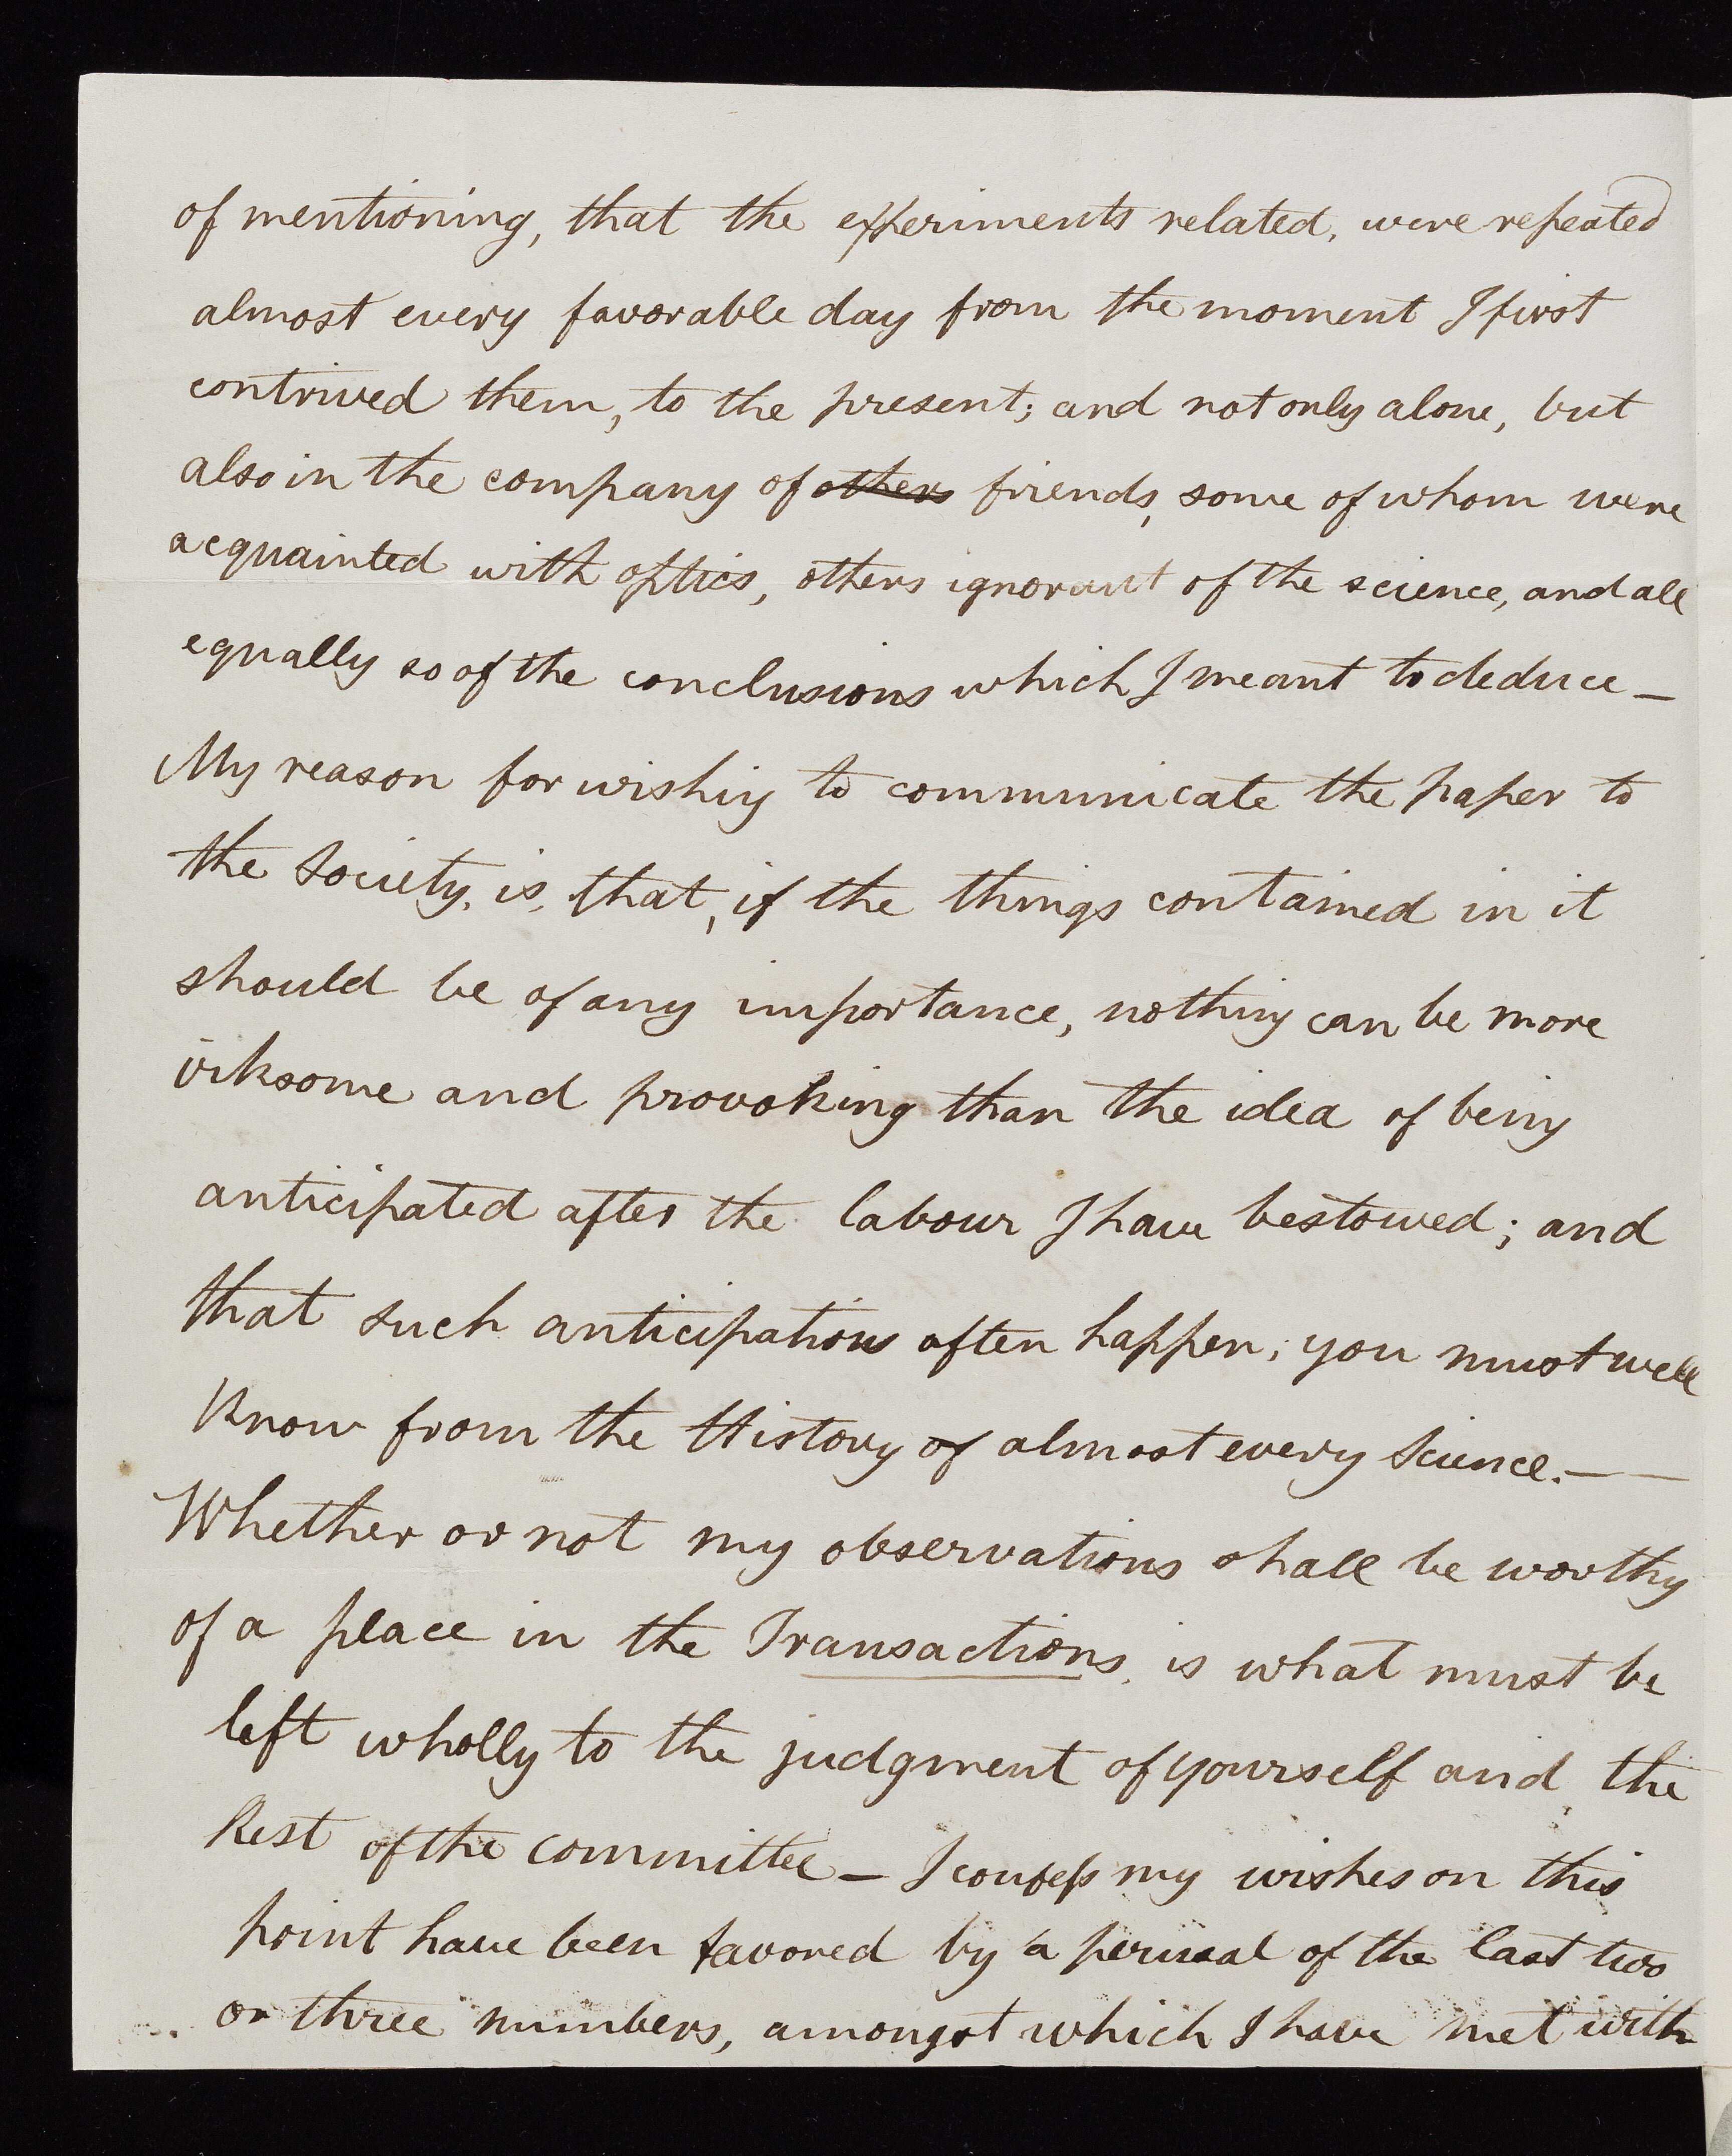 of mentioning, that the experiments related, were repeated
almost every favorable day from the moment I first
contrived them, to the present; and not only alone, but
also in the company of others friends, some of whom were
acquainted with optics, others ignorant of the science, and all
equally so of the conclusions which I meant to deduce —
My reason for wishing to communicate the paper to
the Society, is, that, if the things contained in it
should be of any importance, nothing can be more
irksome and provoking than the idea of being
anticipated after the labour I have bestowed; and
that such anticipations often happen, you must well
know from the History of almost every Science. —
Whether or not my observations shall be worthy
of a place in the Transactions, is what must be
left wholly to the judgment of yourself and the
Rest of the committee — I confess my wishes on this
point have been favored by a perusal of the last two
or three numbers, amongst which I have met with